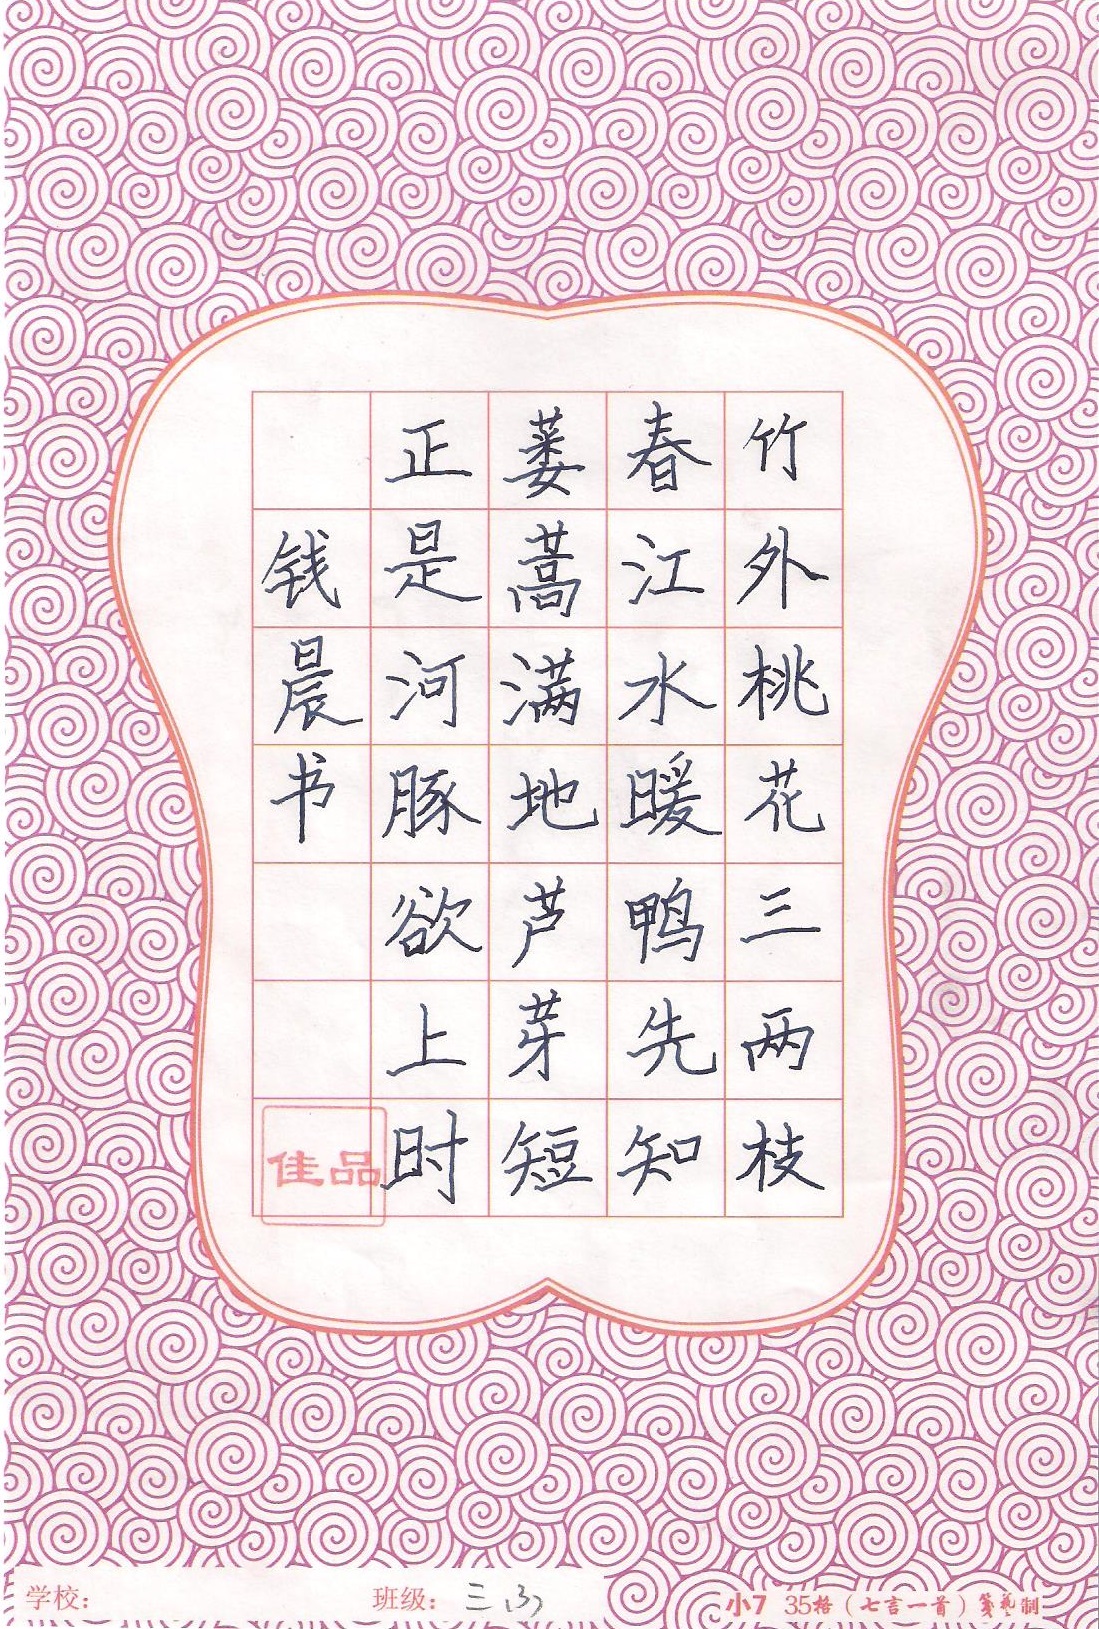 竹外桃花三两枝
春江水暖鸭先知
蒌蒿满地芦芽短
正是河豚欲上时
钱晨书
佳品
学校：
班级：三(3)
小7 35格（七言一首）笺艺制